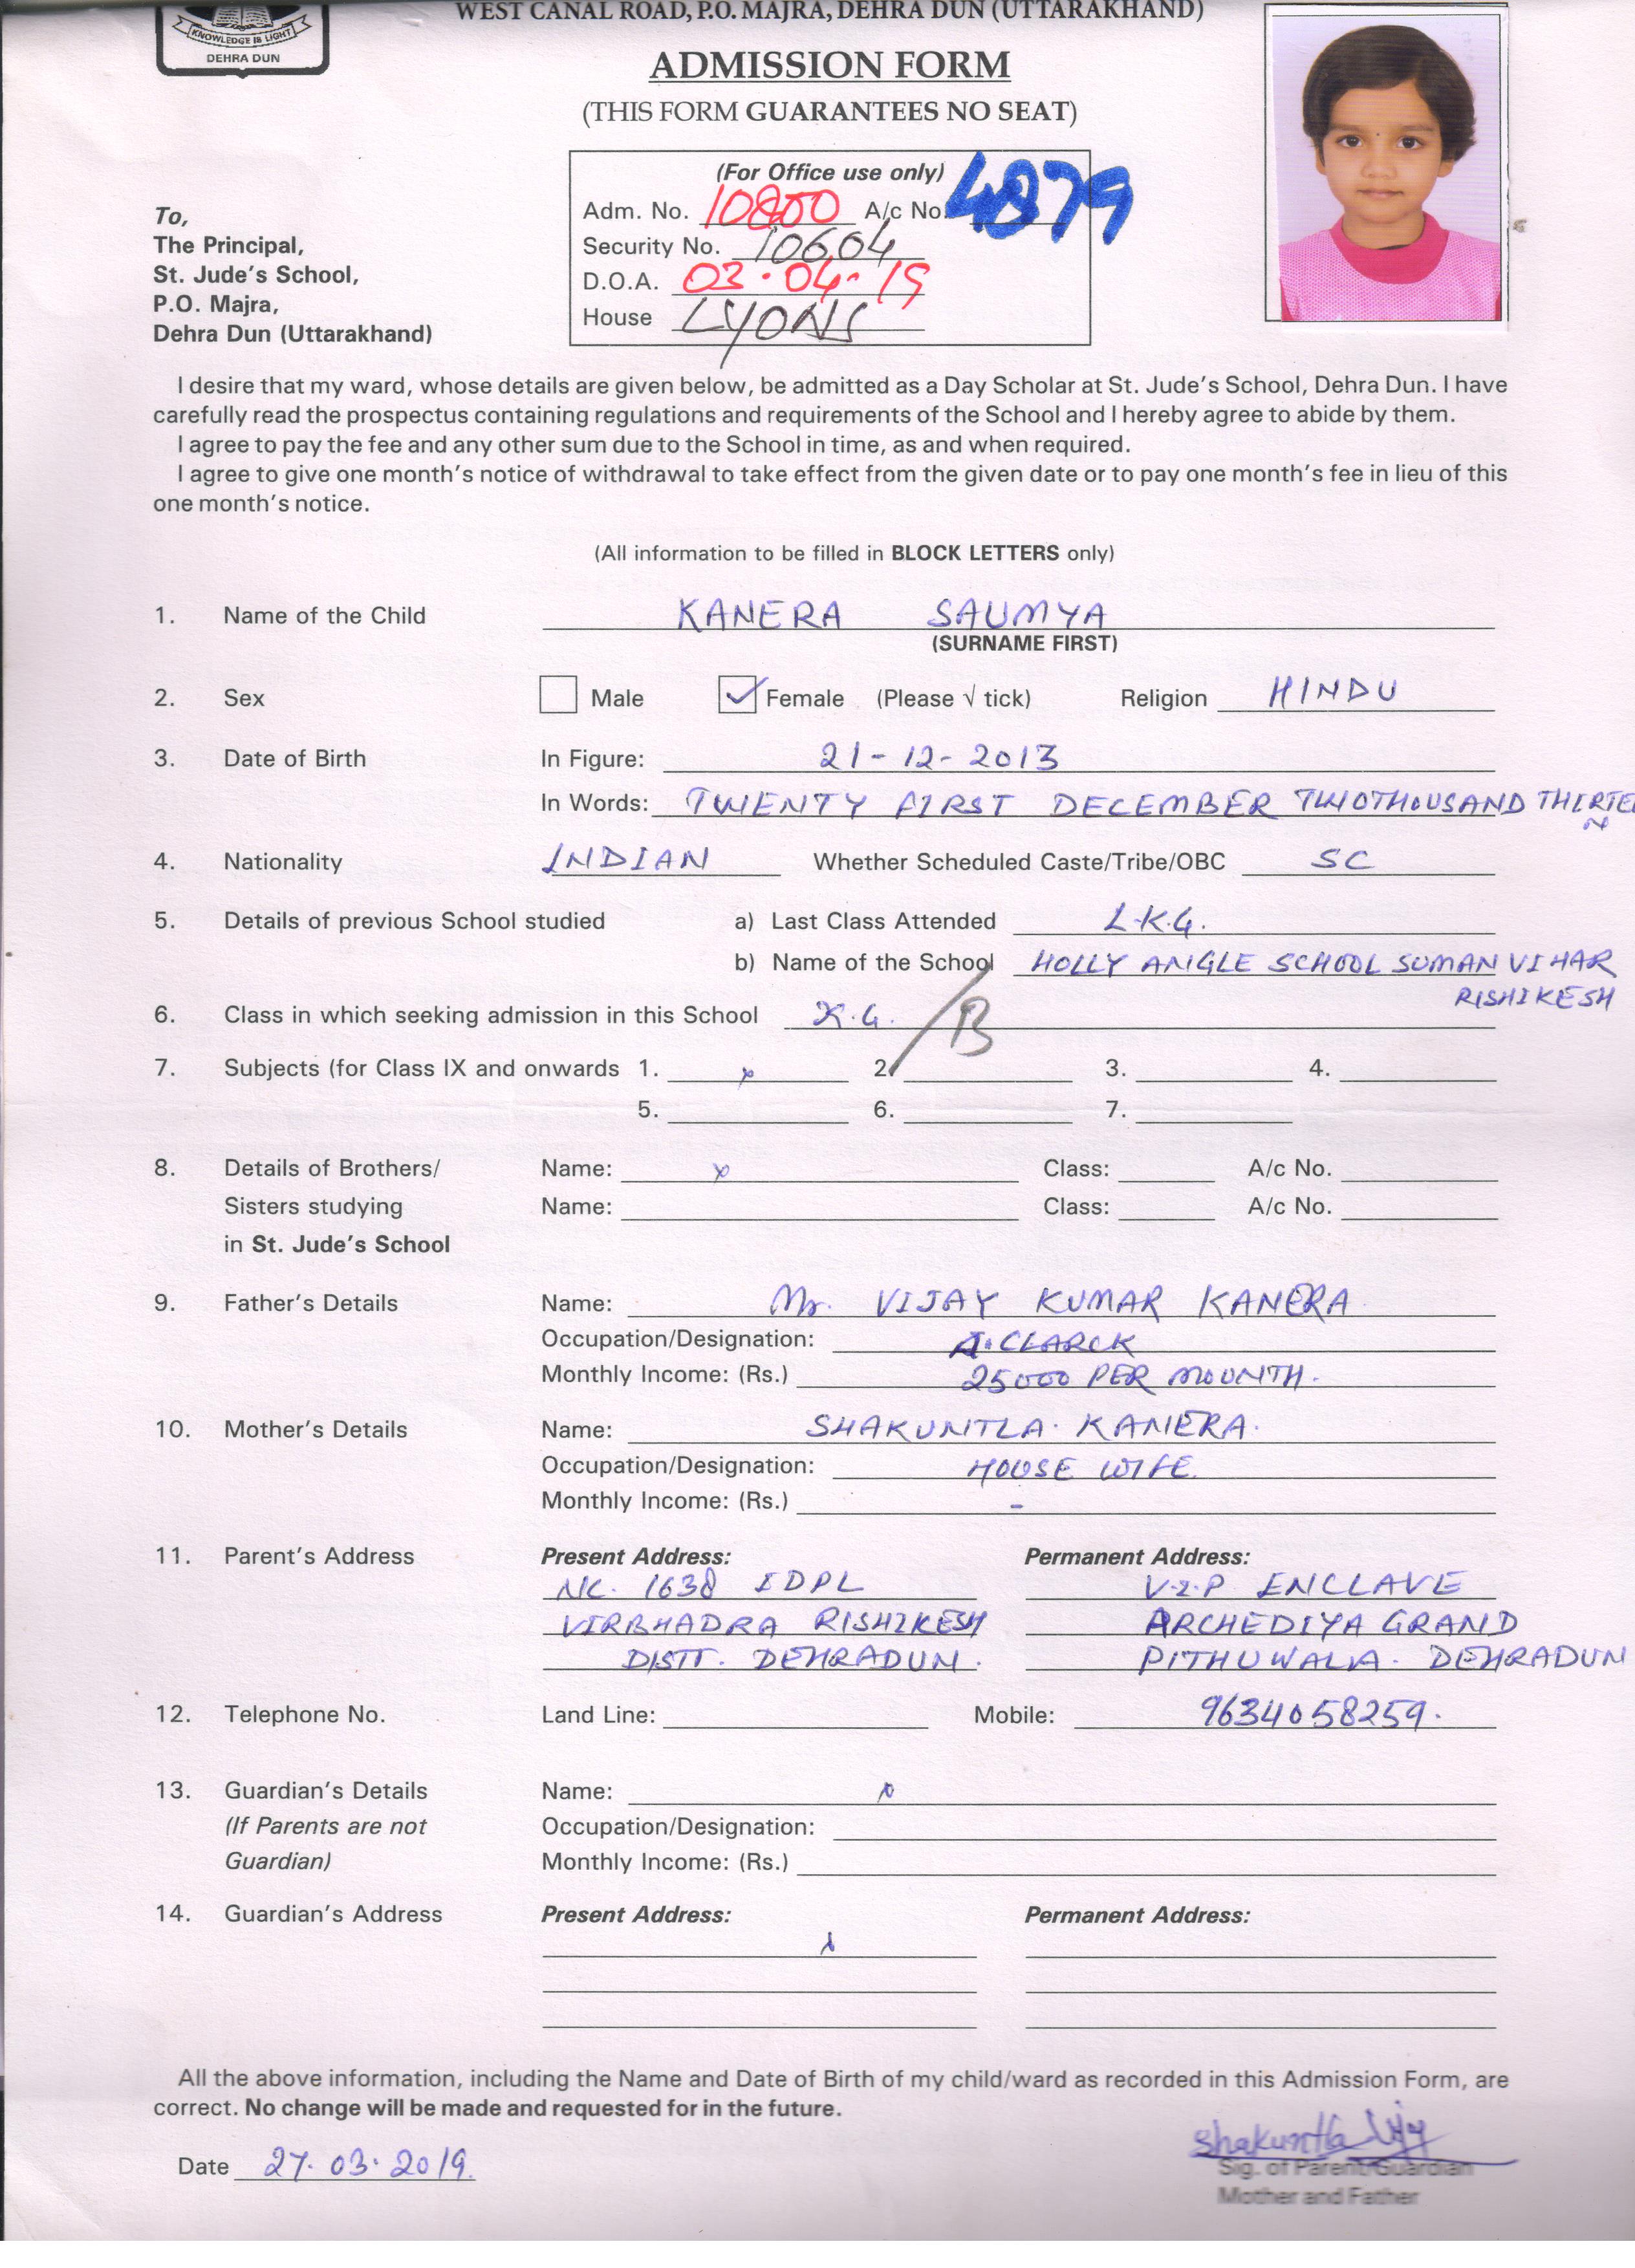 WEST CANAL ROAD, P.O. MAJRA, DEHRA DUN (UTTARAKHAND)
KNOWLEDGE IS LIGHT
DEHRA DUN
ADMISSION FORM
(THIS FORM GUARANTEES NO SEAT)
(For Office use only)
Adm. No. 10800 A/c No. 4879
Security No. 10604
D.O.A. 03.04.19
House LYONS
To,
The Principal,
St. Jude's School,
P.O. Majra,
Dehra Dun (Uttarakhand)
I desire that my ward, whose details are given below, be admitted as a Day Scholar at St. Jude's School, Dehra Dun. I have
carefully read the prospectus containing regulations and requirements of the School and I hereby agree to abide by them.
I agree to pay the fee and any other sum due to the School in time, as and when required.
I agree to give one month's notice of withdrawal to take effect from the given date or to pay one month's fee in lieu of this
one month's notice.
(All information to be filled in BLOCK LETTERS only)
1. Name of the Child KANERA SAUMYA
(SURNAME FIRST)
2. Sex Male ✓ Female (Please √ tick) Religion HINDU
3. Date of Birth In Figure: 21-12-2013
In Words: TWENTY FIRST DECEMBER TWOTHOUSAND THIRTEEN
4. Nationality INDIAN Whether Scheduled Caste/Tribe/OBC SC
5. Details of previous School studied a) Last Class Attended L.K.G.
b) Name of the School HOLLY ANGLE SCHOOL SUMAN VIHAR
RISHIKESH
6. Class in which seeking admission in this School K.G. /B
7. Subjects (for Class IX and onwards 1. x 2. 3. 4.
5. 6. 7.
8. Details of Brothers/ Name: x Class: A/c No.
Sisters studying Name: Class: A/c No.
in St. Jude's School
9. Father's Details Name: Mr. VIJAY KUMAR KANERA
Occupation/Designation: CLARCK
Monthly Income: (Rs.) 25000 PER MOUNTH.
10. Mother's Details Name: SHAKUNTLA. KANERA.
Occupation/Designation: HOUSE WIFE
Monthly Income: (Rs.) -
11. Parent's Address Present Address: Permanent Address:
NC. 1638 IDPL V.I.P ENCLAVE
VIRBHADRA RISHIKESH ARCHEDIYA GRAND
DISTT. DEHRADUN. PITHUWALA. DEHRADUN
12. Telephone No. Land Line: Mobile: 9634058259.
13. Guardian's Details Name: x
(If Parents are not Occupation/Designation:
Guardian) Monthly Income: (Rs.)
14. Guardian's Address Present Address: Permanent Address:
x
All the above information, including the Name and Date of Birth of my child/ward as recorded in this Admission Form, are
correct. No change will be made and requested for in the future.
Shakuntla
Date 27.03.2019 Sig. of Parent/Guardian
Mother and Father